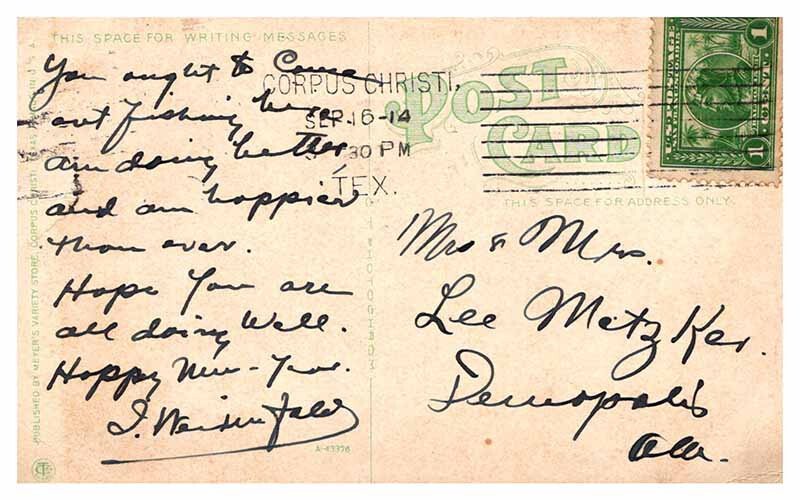 THIS SPACE FOR WRITING MESSAGES
You ought to Come
out fishing here
am doing better
and am happier
than ever.
Hope You are
all doing Well.
Happy New-Year.
CORPUS CHRISTI,
SEP. 16-14
30 PM
TEX.
POST
CARD
THIS SPACE FOR ADDRESS ONLY.
1 CENT 1
Mrs & Mrs.
Lee Metzker.
Demopolis
Ala.
PUBLISHED BY MEYER'S VARIETY STORE, CORPUS CHRISTI, TEXAS.
A-43376